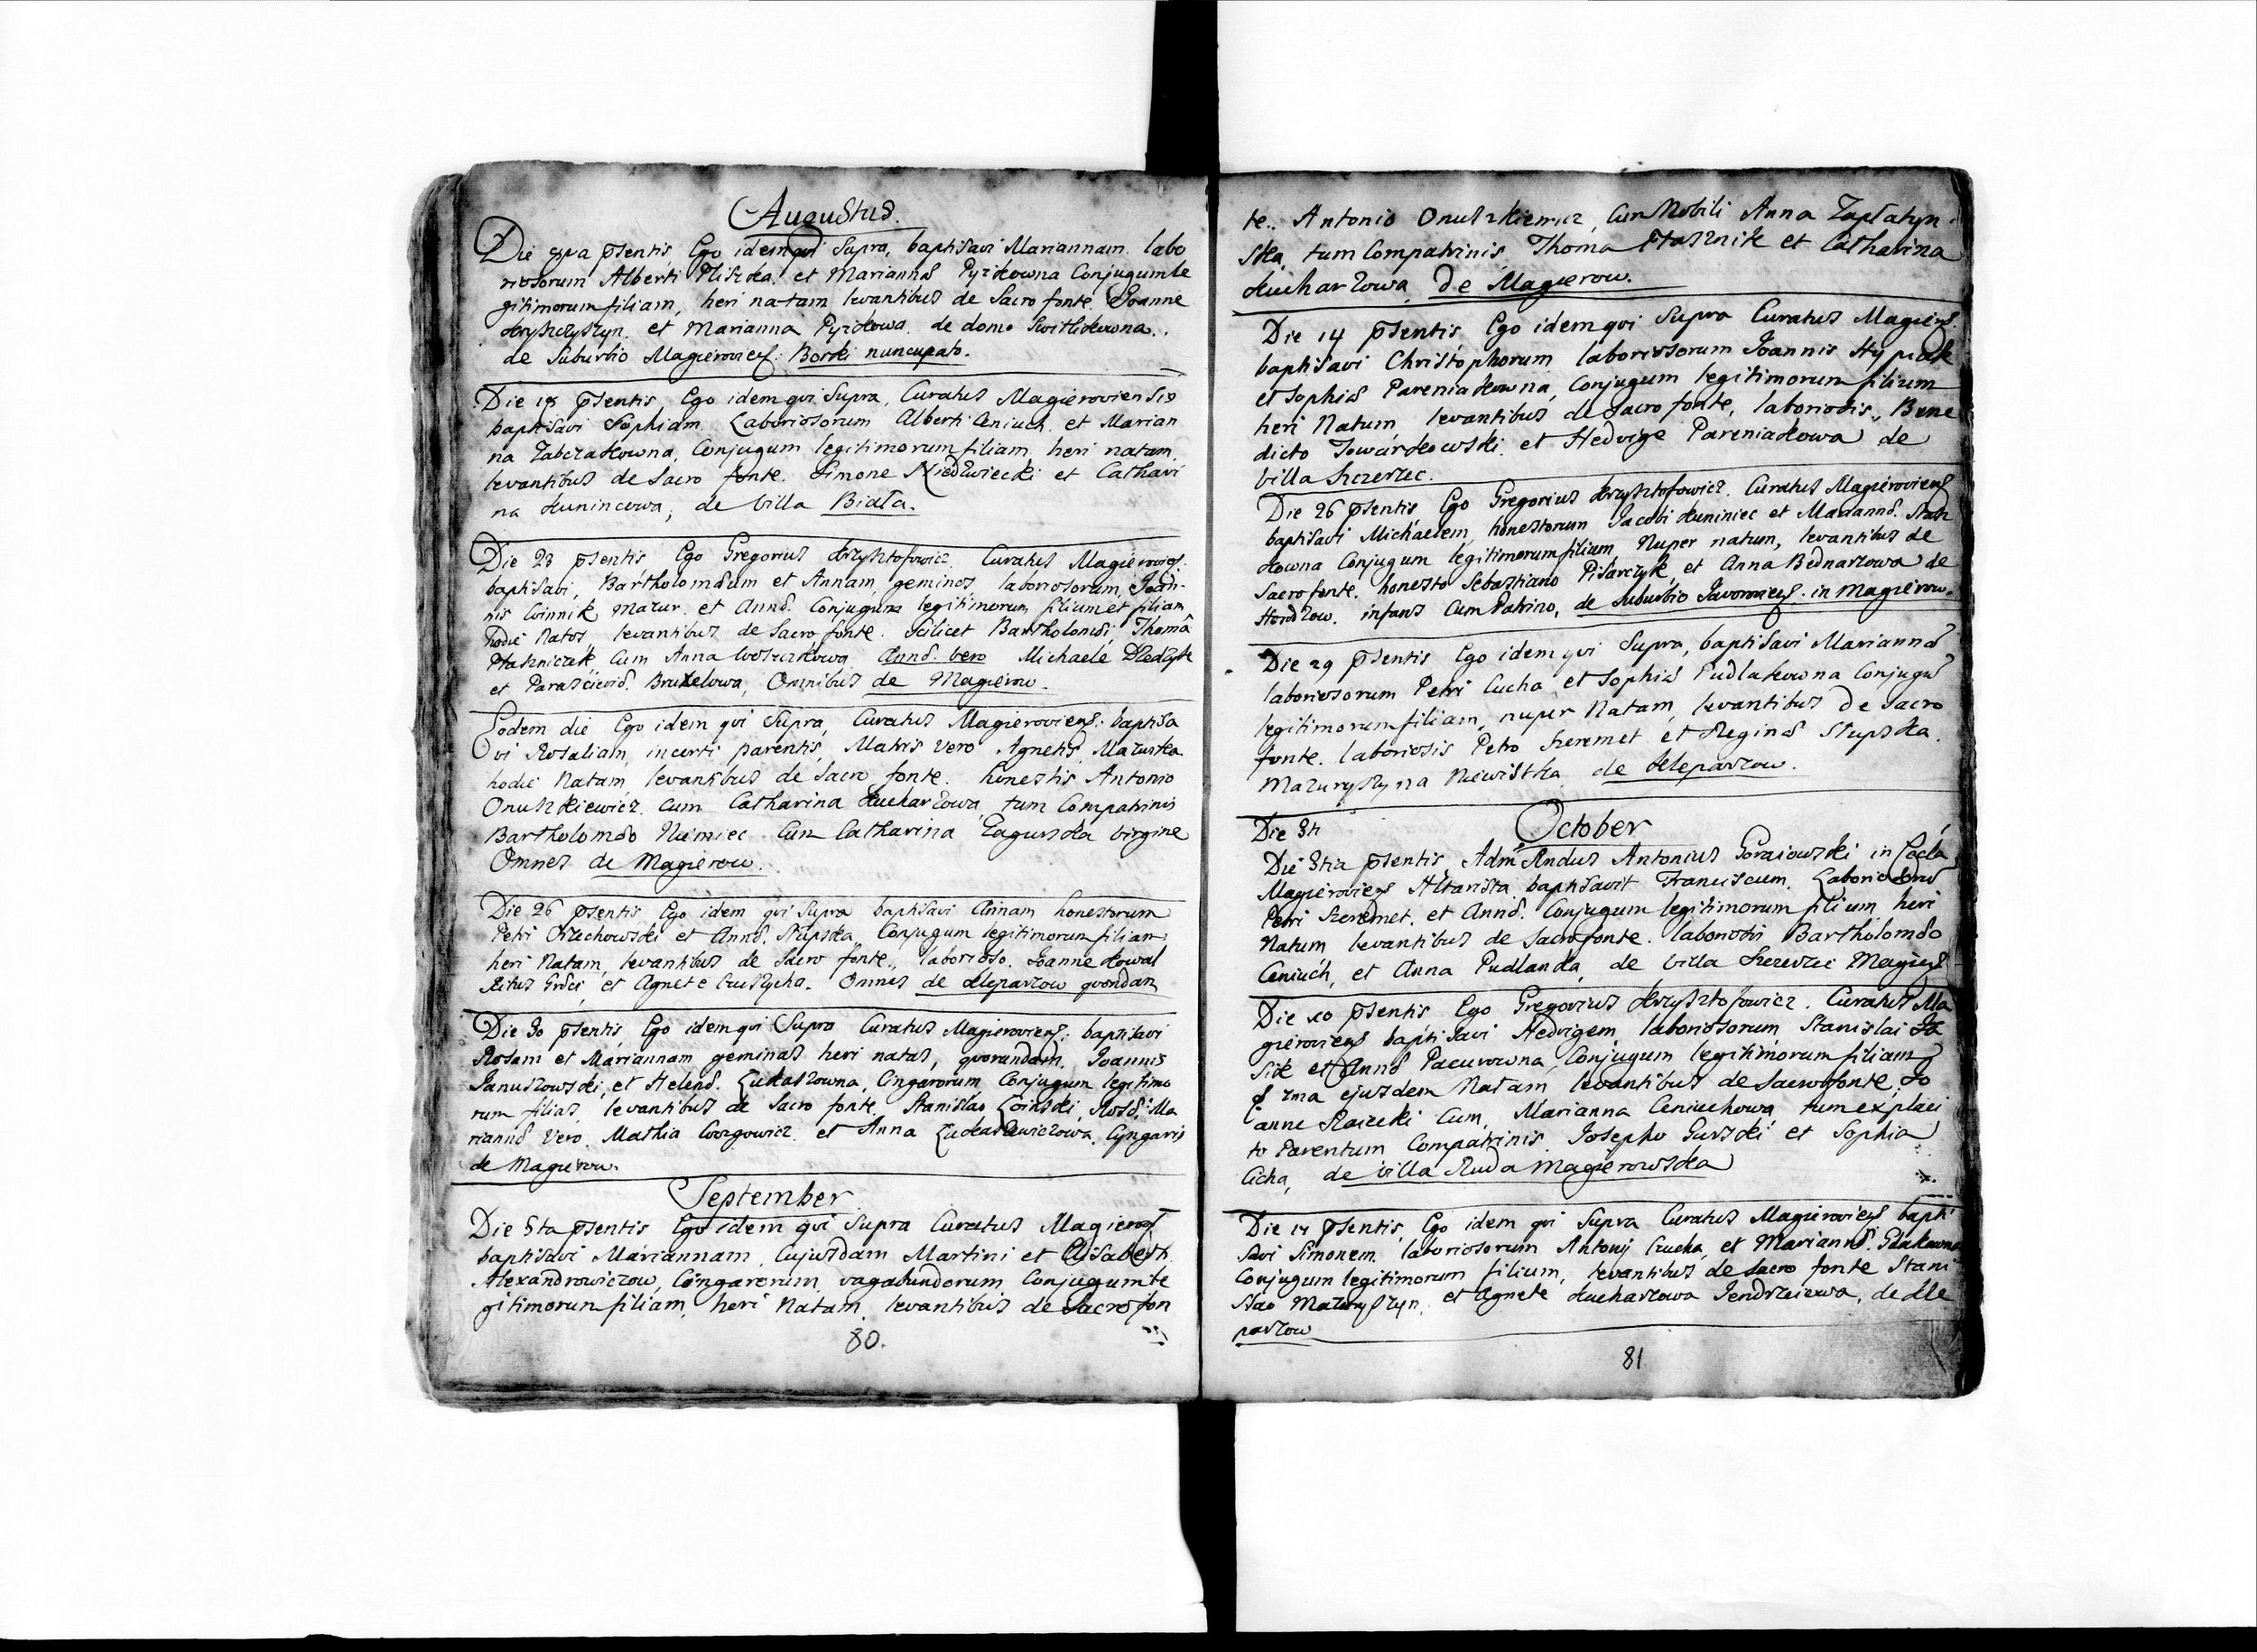 Augustus.
Die 8va psentis, Ego idem qui Supra, baptisavi Mariannam labo
riosorum Alberti Pliszka et Marianna Pyzikowna Conjugum le
gitimorum filiam, heri natam levantibus de Sacro fonte Joanne
Kryszczyszyn, et Marianna Pyzikowa de domo Switlikowna.
de Suburbio Magierovieñ: Borki nuncupato.
Die 18 psentis Ego idem qui Supra, Curatus Magieroviensis
baptisavi Sophiam Laboriosorum Alberti Ceniuch et Marian
na Zabczakowna, Conjugum legitimorum filiam heri natam,
levantibus de Sacro fonte. Simone Niedzwiecki et Cathari
na Kunincowa, de Villa Biała.
Die 23 psentis Ego Gregorius Krzysztofowicz Curatus Magierovieñ:
baptisavi, Bartholomæum et Annam, geminos, laboriosorum, Joan-
nis Mazur et Annæ. Conjugum legitimorum filium et filiam
hodie Natos, levantibus de Sacro fonte. Scilicet Bartholomæi, Thoma
Ptaszniczek, Cum Anna Annæ. vero Michaele
et Parascievia. Omnibus de Magierow.
Eodem die Ego idem qui Supra, Curatus Magierovieñ: baptisa
vi Rosaliam, incerti parentis, Matris Vero Agnetis Mazurka
hodie Natam, levantibus de Sacro fonte. honestis Antonio
Onuszkiewicz cum Catharina Kucharzowa, tum Compatrinis
Bartholomæo Niemiec Cum Catharina Zagurska virgine
Omnes de Magierow.
Die 26 psentis Ego idem qui Supra baptisavi Annam honestorum
Petri Orzechowski et Annæ. Stupska, Conjugum legitimorum filiam
heri Natam, levantibus de Sacro fonte, laborioso. Joanne Kowal
Ritus Græci, et Agnete Omnes de Kleparzow quondam
Die 30 psentis, Ego idem qui Supra Curatus Magierovieñ: baptisavi
Rosam et Mariannam geminas heri natas, quorundam, Joannis
Januszowski, et Helenæ. Łukaszowna, Cingarorum Conjugum legitimo
rum filias, levantibus de Sacro fonte. Stanislao Rosæ. Ma
riannæ Vero. Mathia et Anna Łukasiewiczowa. Cyngaris
de Magierow.
September
Die 5ta psentis Ego idem qui Supra Curatus Magierovieñ
baptisavi Mariannam, Cujusdam Martini et Elisabeth.
Alexandrowiczow, Cyngarorum vagabundorum Conjugum le
gitimorum filiam, heri Natam levantibus de Sacro fon
80.
te. Antonio Onuszkiewicz, Cum Nobili Anna Zapłatyn
ska, tum Compatrinis, Thoma Ptasznik et Catharina
Kucharzowa, de Magierow.
Die 14 psentis, Ego idem qui Supra Curatus Magierovieñ
baptisavi Christophorum laboriosorum Joannis Hypiak
et Sophia Pareniakowna, Conjugum legitimorum filium
heri Natum levantibus de Sacro fonte, laboriosis, Bene
dicto Towarkowski et Hedvige Pareniakowa de
Villa Szczerzec.
Die 26 psentis Ego Gregorius Krzysztofowicz. Curatus Magierovieñ
baptisavi Michaelem, honestorum Jacobi Kuniniec et Mariannæ.
kowna Conjugum legitimorum filium, Nuper natum, levantibus de
Sacro fonte. honesto Sebastiano Pisarczyk, et Anna Bednarzowa de
infans Cum Patrino, de Suburbio in Magierow.
Die 29 psentis Ego idem qui Supra, baptisavi Marianna
laboriosorum Petri Cucha, et Sophia Pudlakowna Conjugu
legitimorum filiam, nuper Natam, levantibus de Sacro
fonte. laboriosis Petro Szeremet et Regina Stupska
Mazuryszyna Niewistka de Kleparzow.
Die 3ti
October
Die 3tia psentis, Adm Rndus Antonius Goraiowski in Ecclâ
Magierovieñ Altarista baptisavit Franciscum. Laboriosorum
Petri Szeremet et Annæ. Conjugum legitimorum filium heri
Natum levantibus de Sacro fonte. laboriosis Bartholomæo
Ceniuch, et Anna Pudlanka, de Villa Szczerzec Magierovieñ
Die 10 psentis Ego Gregorius Krzysztofowicz. Curatus Ma
gierovieñ baptisavi Hedvigem, laboriosorum Stanislai Ja
sik et Annæ Pacurowna, Conjugum legitimorum filiam
ejusdem Natam levantibus de Sacro fonte; Jo
anne Cum, Marianna Ceniuchowa tum ex placi
to Parentum Compatrinis Josepho Gurski et Sophia
Cicha, de Villa Ruda Magierowska
Die 14 psentis, Ego idem qui Supra Curatus Magierovieñ bapti
savi Simonem laboriosorum Antonij Czucha, et Mariannæ.
Conjugum legitimorum filium, levantibus de Sacro fonte Stani
slao Mazuryszyn, et Agnete Kucharzowa Jendrzeiewa, de Kle
parzow
81